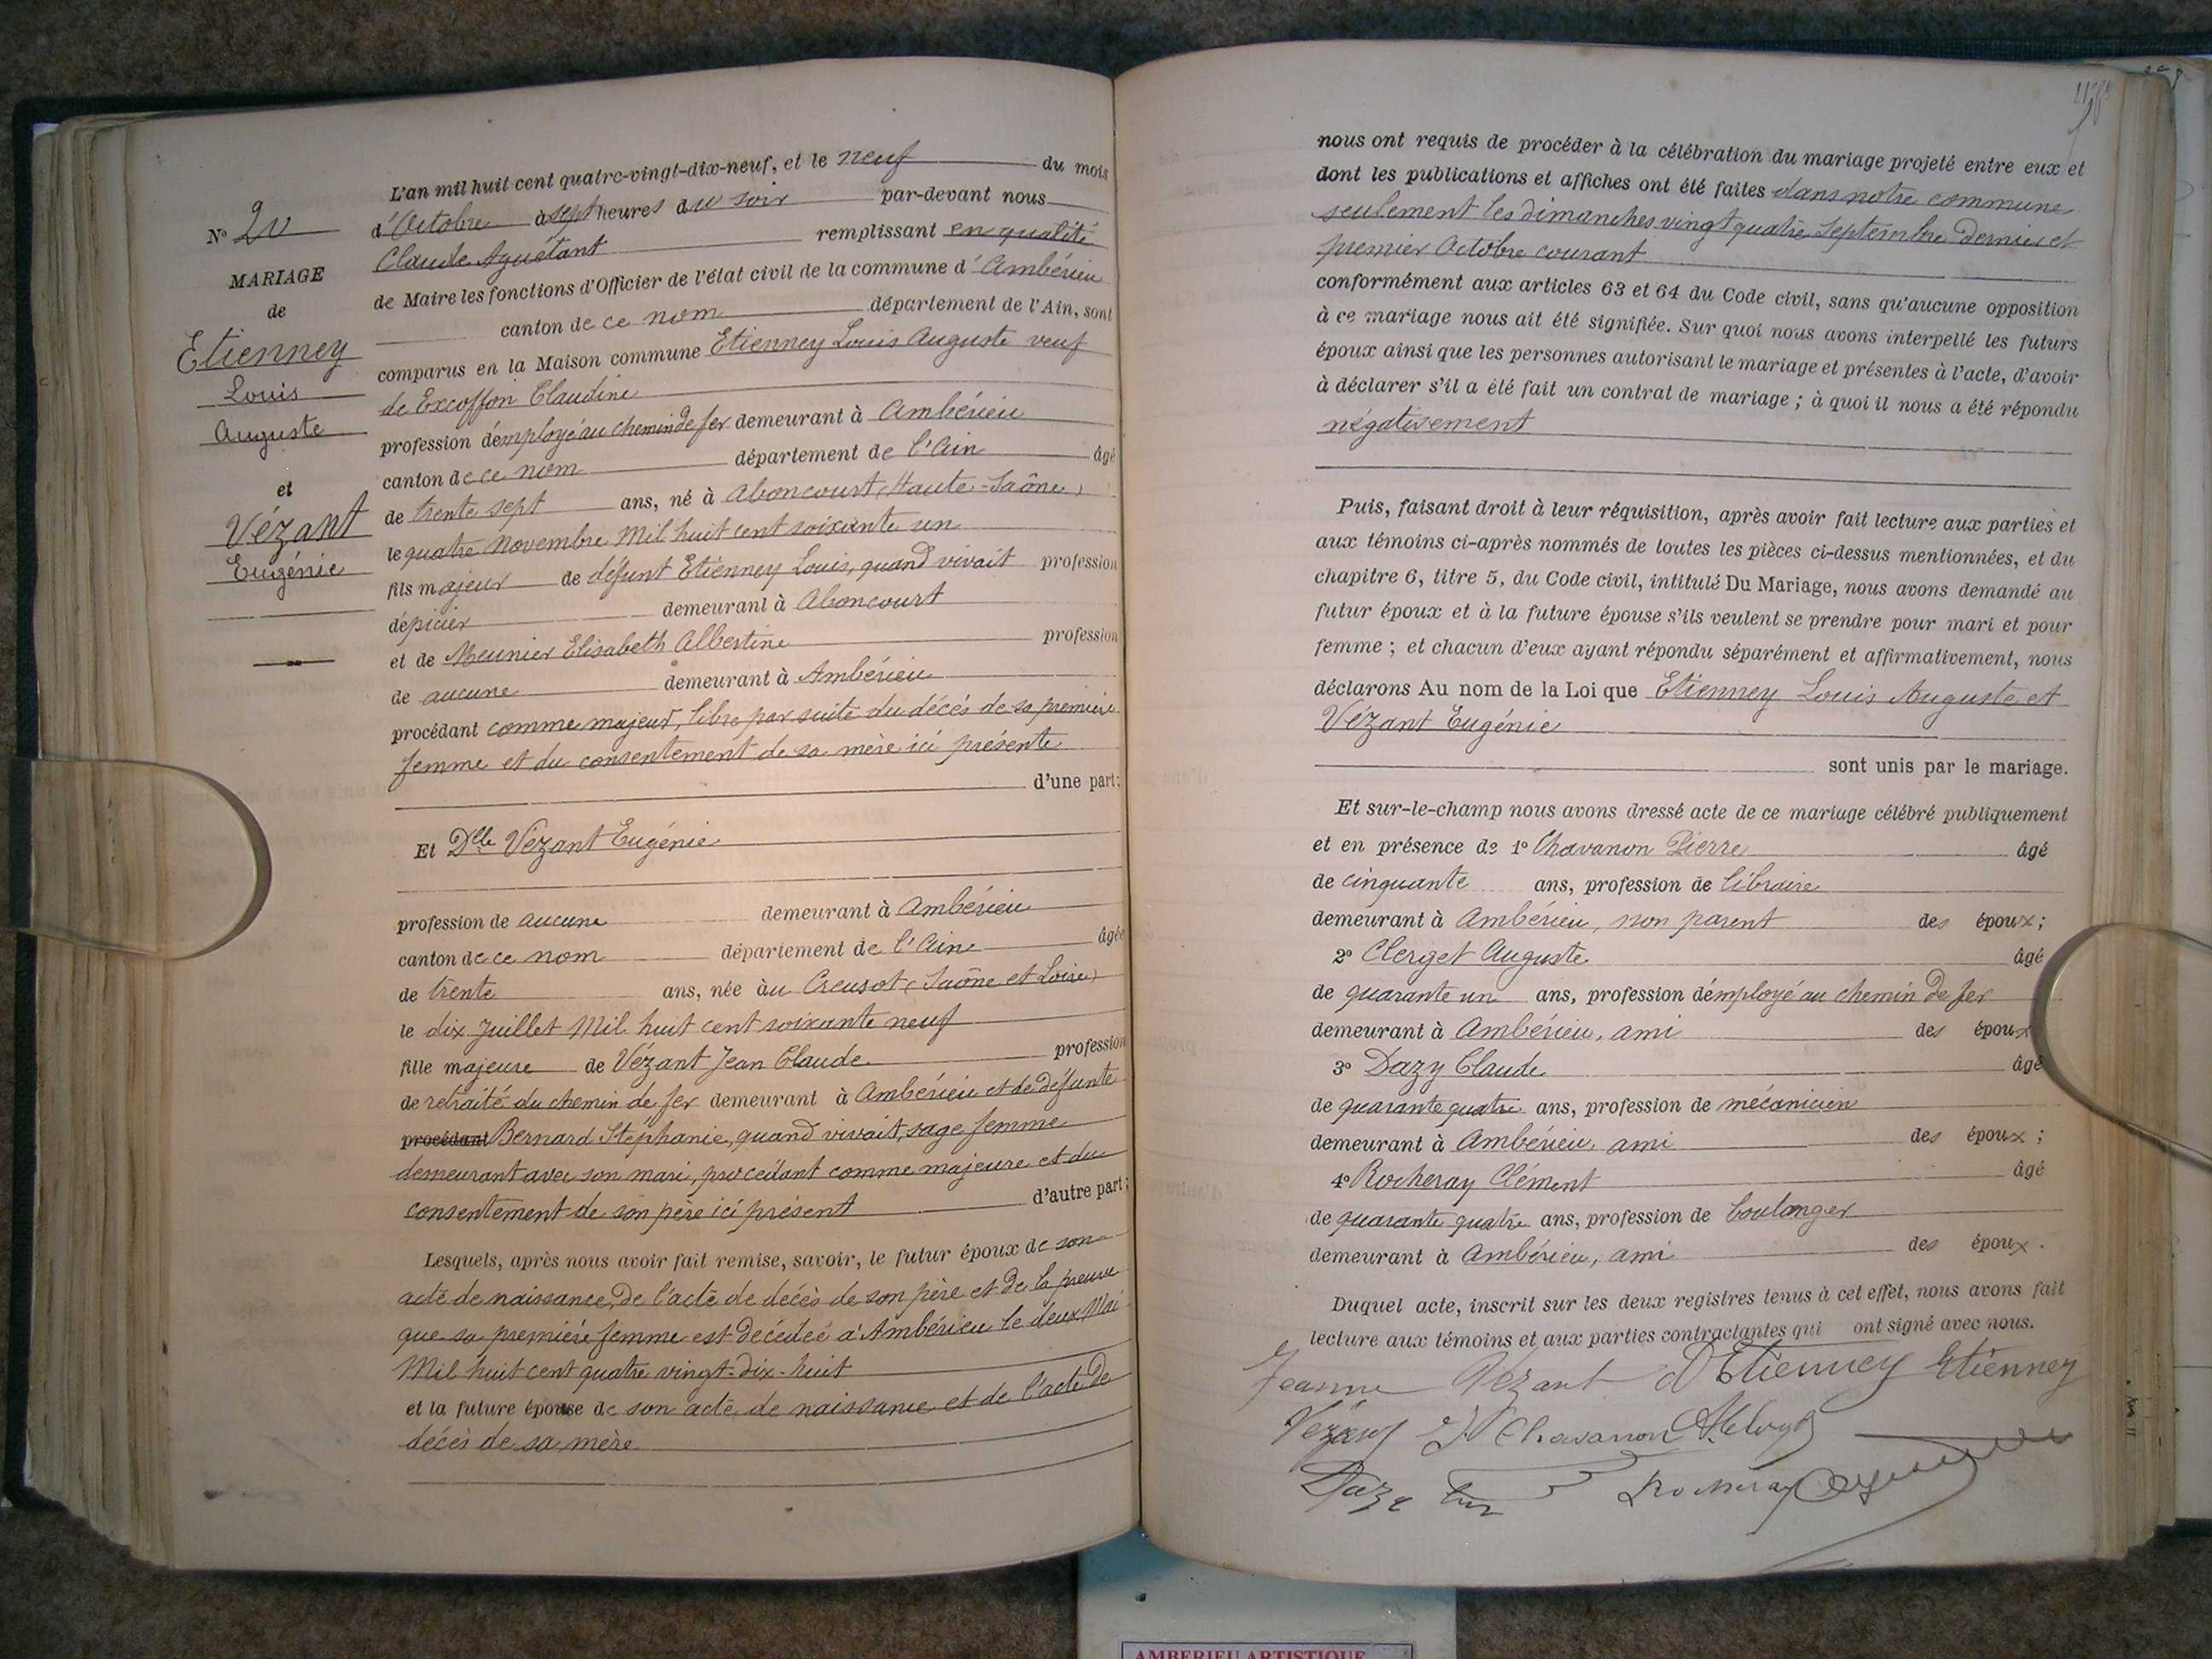 L'an mil huit cent quatre-vingt-dix-neuf, et le neuf du mois
d'Octobre à sept heures du soir par-devant nous
Claude Aguétant remplissant en qualité
de Maire les fonctions d'Officier de l'état civil de la commune d'Ambérieu
canton de ce nom département de l'Ain, sont
comparus en la Maison commune Etienney Louis Auguste veuf
de Excoffon Claudine
profession d'employé au chemin de fer demeurant à Ambérieu
canton de ce nom département de l'Ain âgé
de trente sept ans, né à Aboncourt (Haute-Saône)
le quatre Novembre Mil huit cent soixante un
fils majeur de défunt Etienney Louis, quand vivait profession
d'épicier demeurant à Aboncourt
et de Meunier Elisabeth Albertine profession
de aucune demeurant à Ambérieu
procédant comme majeur, libre par suite du décès de sa première
femme et du consentement de sa mère ici présente
d'une part;
Et Dlle Vézant Eugénie
profession de aucune demeurant à Ambérieu
canton de ce nom département de l'Ain âgée
de trente ans, née au Creusot (Saône et Loire)
le dix Juillet Mil huit cent soixante neuf
fille majeure de Vézant Jean Claude profession
de retraité du chemin de fer demeurant à Ambérieu et de défunte
procédant Bernard Stéphanie, quand vivait, sage femme
demeurant avec son mari, procédant comme majeure et du
consentement de son père ici présent d'autre part;
Lesquels, après nous avoir fait remise, savoir, le futur époux de son
acte de naissance, de l'acte de décès de son père et de la preuve
que sa première femme est décédée à Ambérieu le deux Mai
Mil huit cent quatre vingt-dix-huit
et la future épouse de son acte de naissance et de l'acte de
décès de sa mère
N° 20
MARIAGE
de
Etienney
Louis
Auguste
et
Vézant
Eugénie
nous ont requis de procéder à la célébration du mariage projeté entre eux et
dont les publications et affiches ont été faites dans notre commune
seulement les dimanches vingt quatre Septembre dernier et
premier Octobre courant
conformément aux articles 63 et 64 du Code civil, sans qu'aucune opposition
à ce mariage nous ait été signifiée. Sur quoi nous avons interpellé les futurs
époux ainsi que les personnes autorisant le mariage et présentes à l'acte, d'avoir
à déclarer s'il a été fait un contrat de mariage ; à quoi il nous a été répondu
négativement
Puis, faisant droit à leur réquisition, après avoir fait lecture aux parties et
aux témoins ci-après nommés de toutes les pièces ci-dessus mentionnées, et du
chapitre 6, titre 5, du Code civil, intitulé Du Mariage, nous avons demandé au
futur époux et à la future épouse s'ils veulent se prendre pour mari et pour
femme ; et chacun d'eux ayant répondu séparément et affirmativement, nous
déclarons Au nom de la Loi que Etienney Louis Auguste et
Vézant Eugénie
sont unis par le mariage.
Et sur-le-champ nous avons dressé acte de ce mariage célébré publiquement
et en présence de 1° Chavanon Pierre âgé
de cinquante ans, profession de libraire
demeurant à Ambérieu, non parent des époux ;
2° Clerget Auguste âgé
de quarante un ans, profession d'employé au chemin de fer
demeurant à Ambérieu, ami des époux
3° Dazy Claude âgé
de quarante quatre ans, profession de mécanicien
demeurant à Ambérieu, ami des époux ;
4° Rocheray Clément âgé
de quarante quatre ans, profession de boulanger
demeurant à Ambérieu, ami des époux.
Duquel acte, inscrit sur les deux registres tenus à cet effet, nous avons fait
lecture aux témoins et aux parties contractantes qui ont signé avec nous.
Jeanne Vézant Etienney Etienney
Vézant Chavanon
Rocheray
AMBERIEU ARTISTIQUE